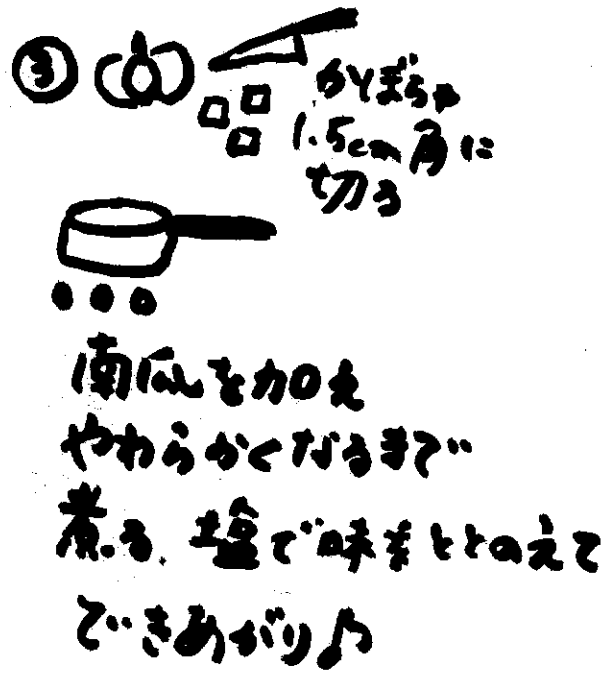 ③
かぼちゃ
1.5cm角に
切る
南瓜を加え
やわらかくなるまで
煮る、塩で味をととのえて
できあがり♪